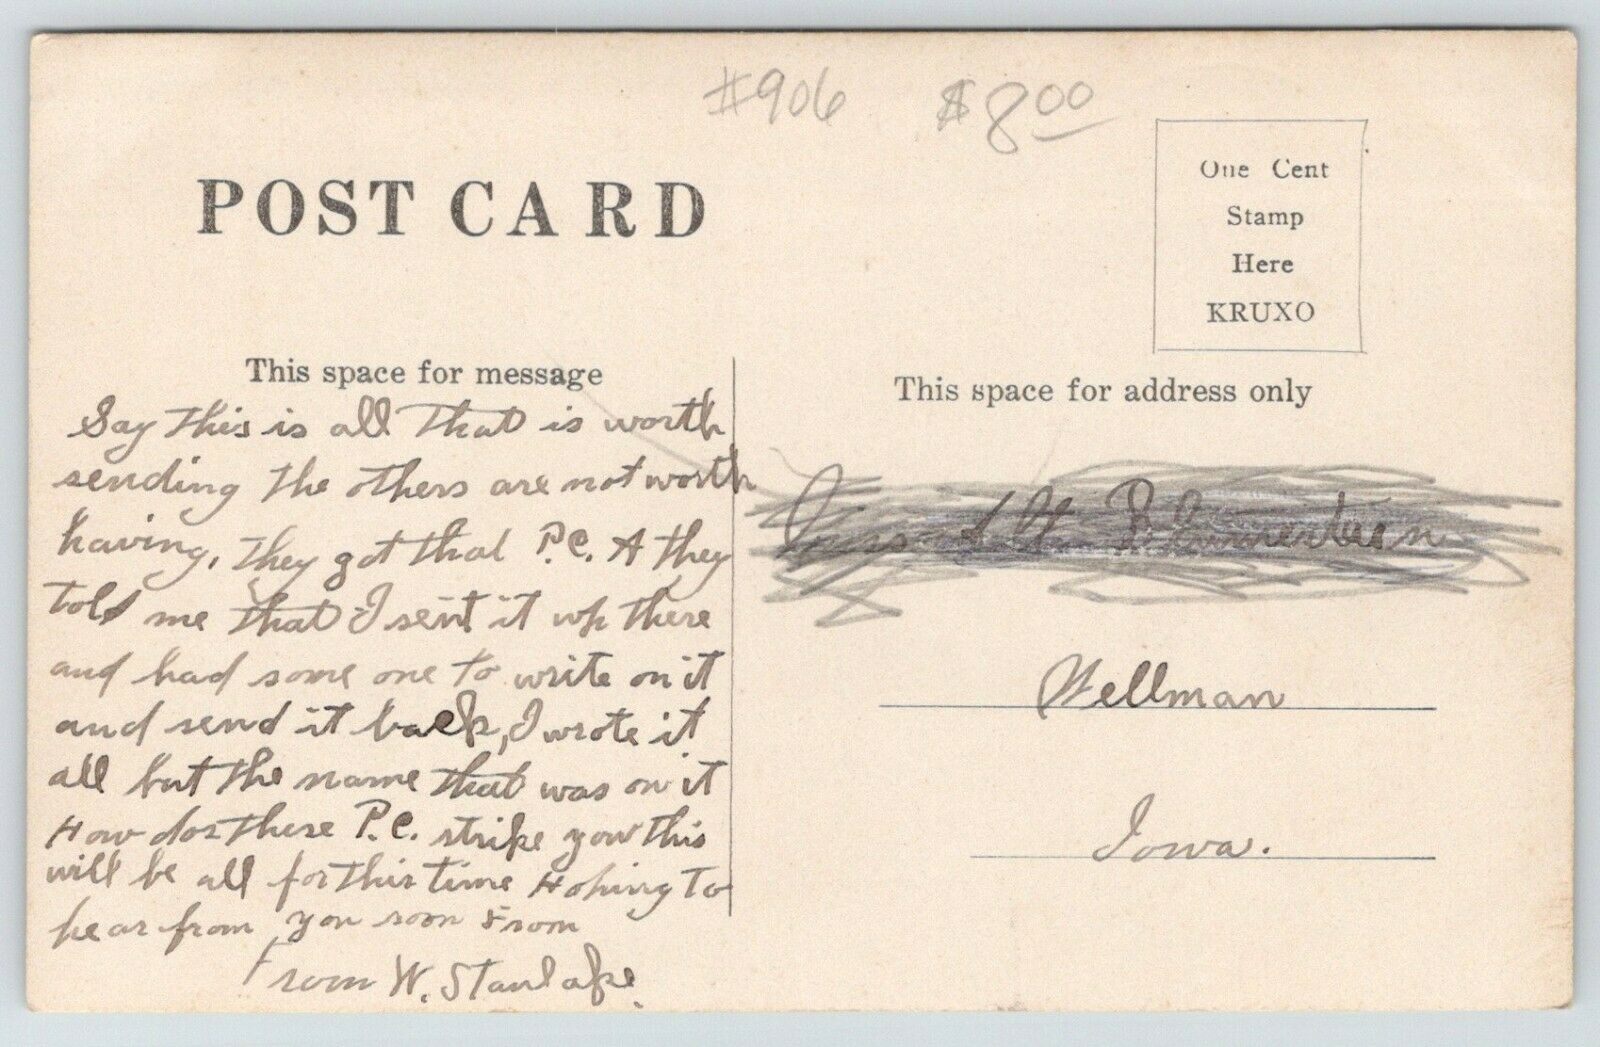 #906 $8.00
POST CARD
One Cent
Stamp
Here
KRUXO
This space for message
This space for address only
Say this is all that is worth
sending the others are not worth
having, they got that P.C. A they
told me that I sent it up there
and had some one to write on it
and send it back, I wrote it
all but the name that was on it
How dos these P.C. strike you this
will be all for this time Hoping to
hear from you soon &
From W. Stanlake.
Wellman
Iowa.